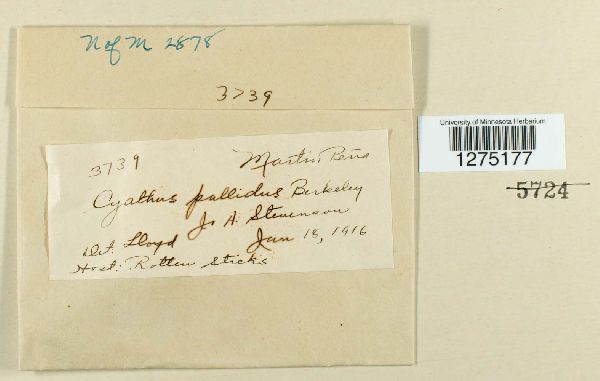 N of M 2878
3739
University of Minnesota Herbarium
1275177
5724
3739 Martin Pena
Cyathus pallidus Berkeley
Jo A. Stevenson
Det. Lloyd Jan 18, 1916
Host: Rotten sticks